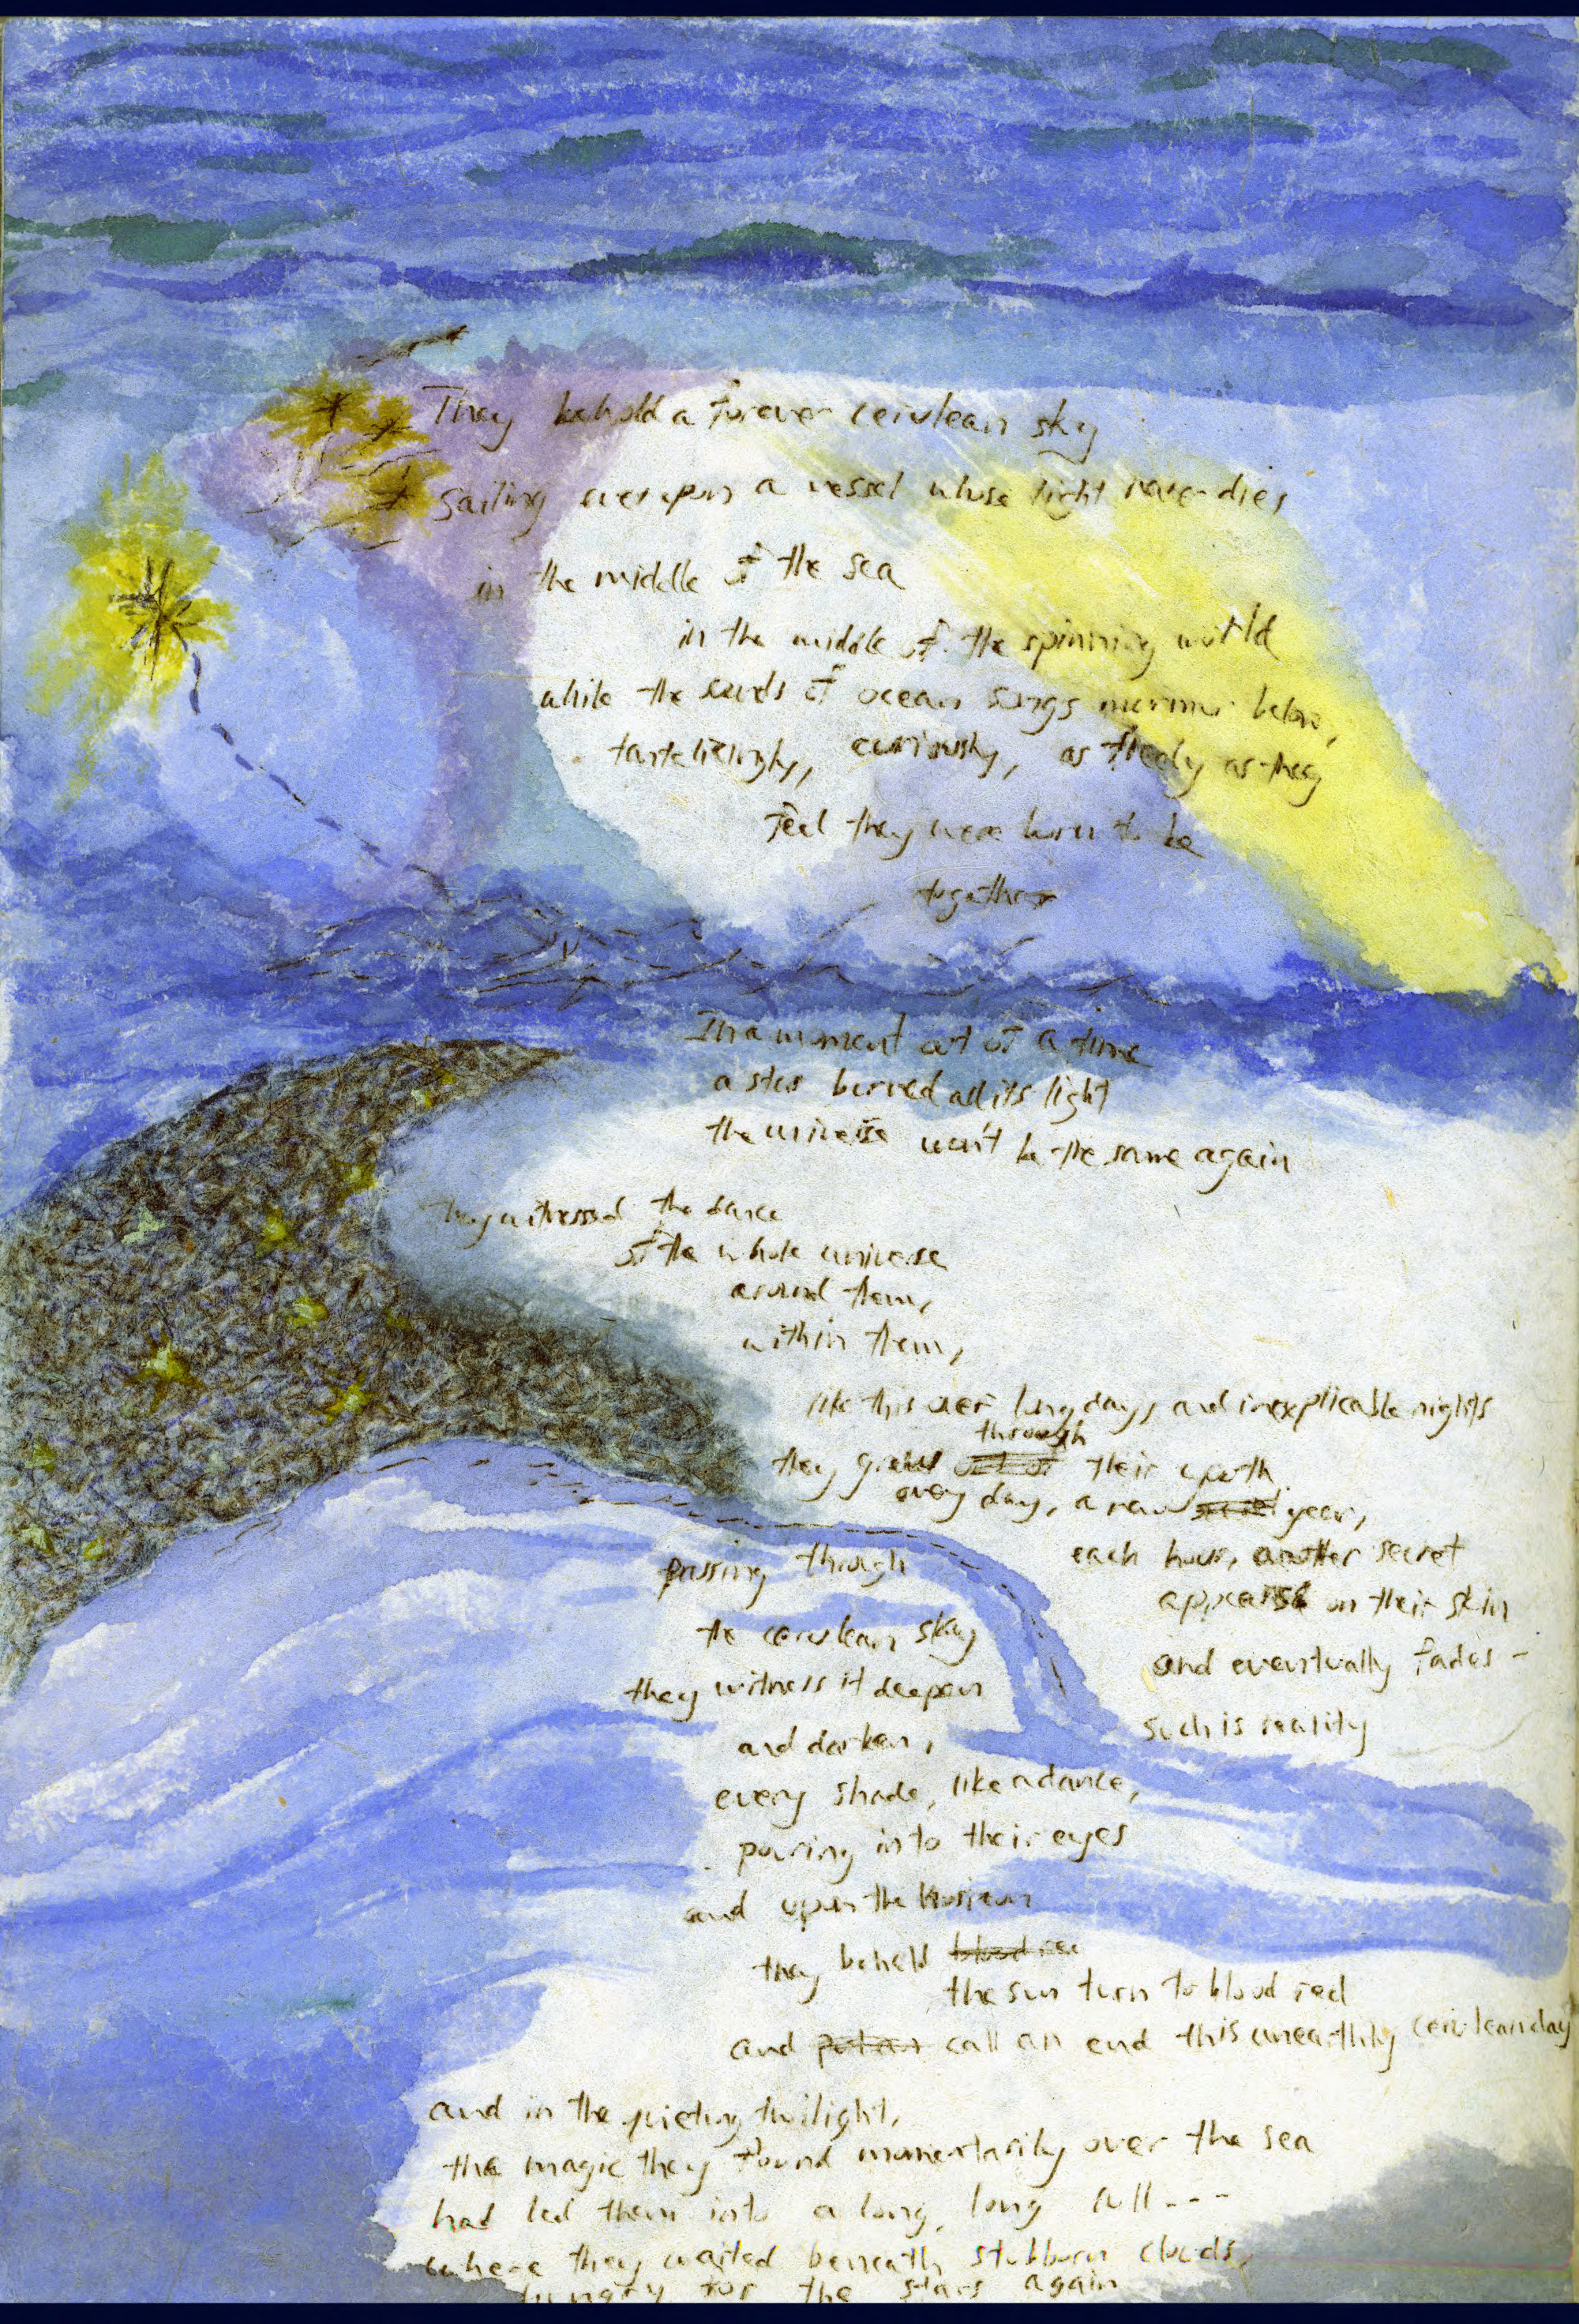 They behold a forever cerulean sky
Sailing ever upon a vessel whose light never dies
in the middle of the sea
in the middle of the spinning world
while the sounds of ocean songs murmur below,
tantelizingly, curiously, as freely as they
feel they were born to be
together
In a moment out of a time
a star burned all its light
the universe won't be the same again
They witnessed the dance
of the whole universe
around them,
within them,
like this over long days and inexplicable nights
through
they grew out of their youth
every day, a new year,
each hour, another secret
appears on their skin
and eventually fades -
such is reality
passing through
the cerulean sky
they witness it deepen
and darken,
every shade, like a dance,
pouring into their eyes
and upon the horizon
they beheld blood red
the sun turn to blood red
and put an call an end this unearthly cerulean day
and in the quieting twilight,
the magic they found momentarily over the sea
had led them into a long, long lull---
where they waited beneath stubborn clouds,
hungry for the stars again